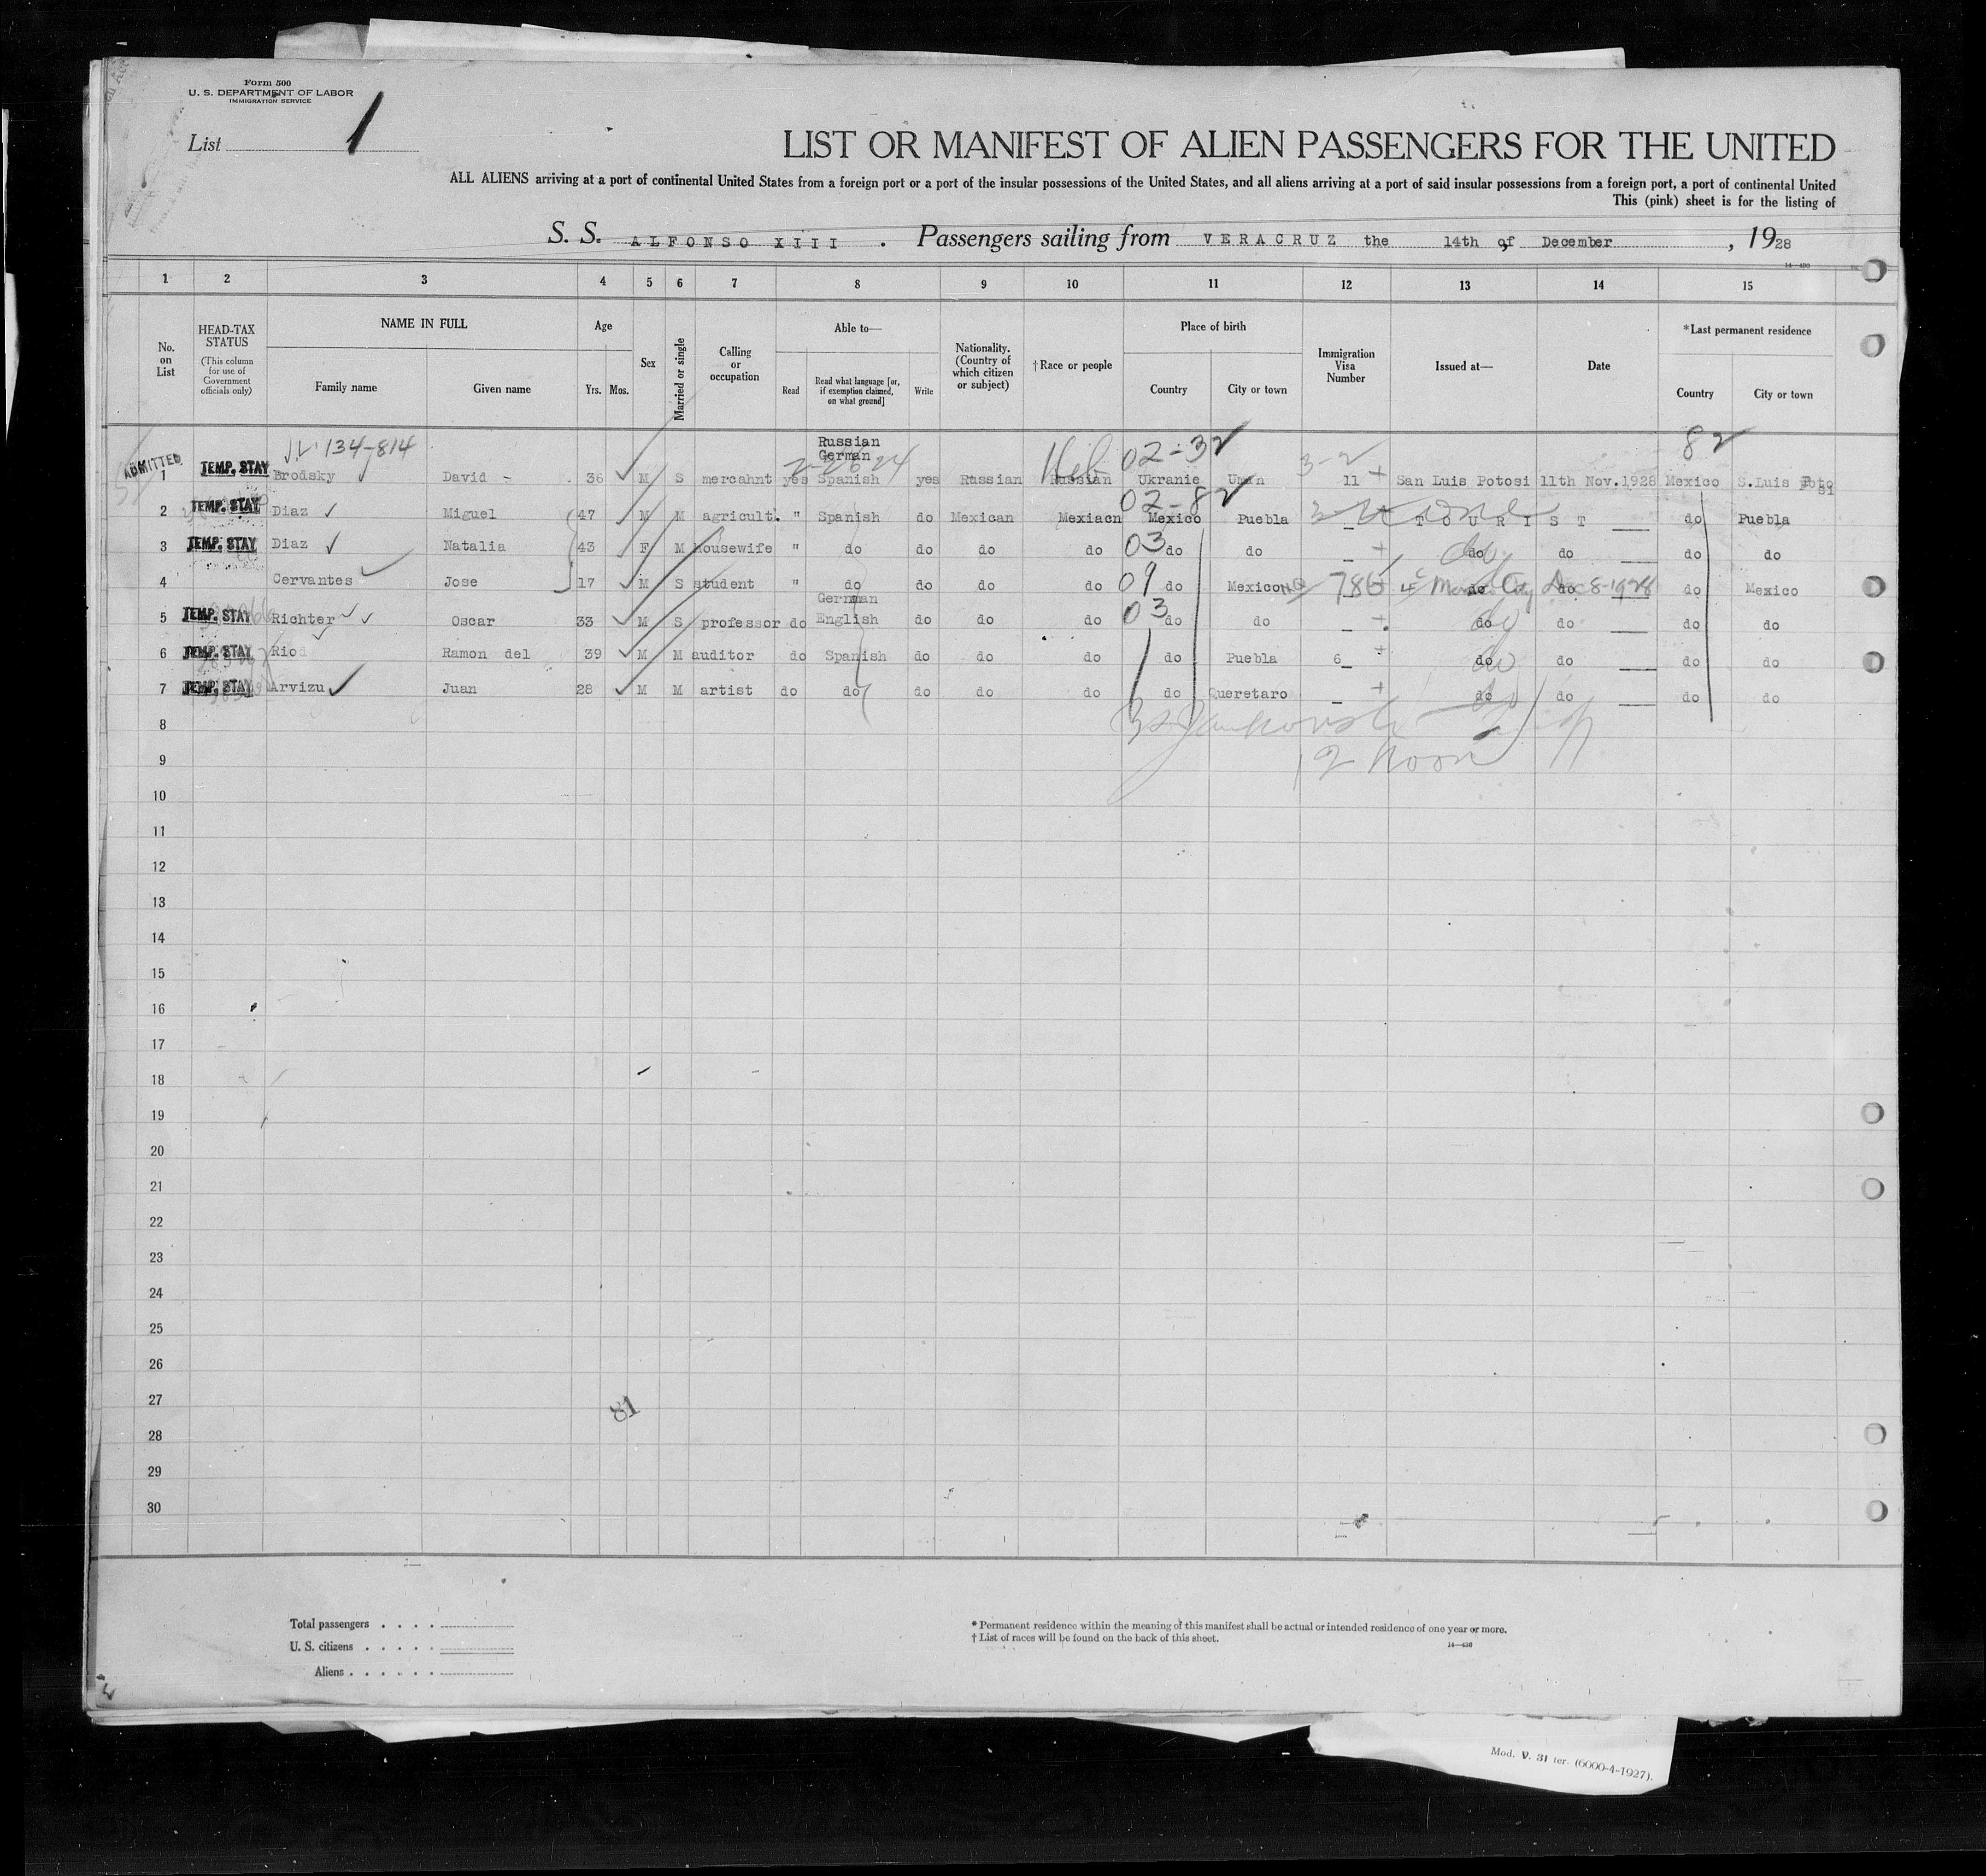 Form 500
U. S. DEPARTMENT OF LABOR
IMMIGRATION SERVICE
List 1
LIST OR MANIFEST OF ALIEN PASSENGERS FOR THE UNITED
ALL ALIENS arriving at a port of continental United States from a foreign port or a port of the insular possessions of the United States, and all aliens arriving at a port of said insular possessions from a foreign port, a port of continental United
This (pink) sheet is for the listing of
S. S. ALFONSO XIII . Passengers sailing from VERACRUZ the 14th of December , 1928
14—430
1 2 3 4 5 6 7 8 9 10 11 12 13 14 15
No. on List
HEAD-TAX STATUS (This column for use of Government officials only)
NAME IN FULL
Family name Given name
Age
Yrs. Mos.
Sex
Married or single
Calling or occupation
Able to—
Read Read what language [or, if exemption claimed, on what ground] Write
Nationality. (Country of which citizen or subject)
†Race or people
Place of birth
Country City or town
Immigration Visa Number
Issued at—
Date
*Last permanent residence
Country City or town
134-814 Russian 02-32 82
German 2-2624 Heb 3-2
ADMITTED
1 TEMP. STAY Brodsky David - 36 M S mercahnt yes Spanish yes Russian Russian Ukranie Uman 11 San Luis Potosi 11th Nov.1928 Mexico S.Luis Potosi
02-82
2 TEMP. STAY Diaz Miguel 47 M M agricult. " Spanish do Mexican Mexiacn Mexico Puebla — TOURIST — do Puebla
3 TEMP. STAY Diaz Natalia 43 F M housewife " do do do do 03 do do — do do do do
4 Cervantes Jose 17 M S student " do do do do 09 do Mexico 786 do Mexico City do Dec 8-1928 do Mexico
German
5 TEMP. STAY Richter Oscar 33 M S professor do English do do do 03 do do — do do — do do
6 TEMP. STAY Rio Ramon del 39 M M auditor do Spanish do do do do Puebla 6 do do — do do
7 TEMP. STAY Arvizu Juan 28 M M artist do do do do do do Queretaro — do do — do do
8
12 Noon
9
10
11
12
13
14
15
16
17
18
19
20
21
22
23
24
25
26
27
81
28
29
30
Total passengers . . . .
U. S. citizens . . . . .
Aliens . . . . . .
* Permanent residence within the meaning of this manifest shall be actual or intended residence of one year or more.
† List of races will be found on the back of this sheet.
14—430
Mod. V. 31 ter. (6000-4-1927).